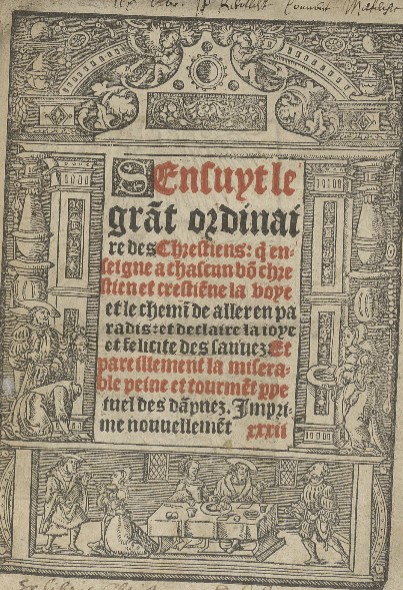 SEnsuyt le
grãt ordinai
re des Chrestiens: q̃ en-
seigne a chascun bõ chre
stien et crestiẽne la voye
et le chemĩ de aller en pa
radis: et declaire la ioye
et felicite des sauuez Et
pareillement la misera-
ble peine et tourmẽt ppe
tuel des dãpnez. Impri
me nouuellemẽt xxxii